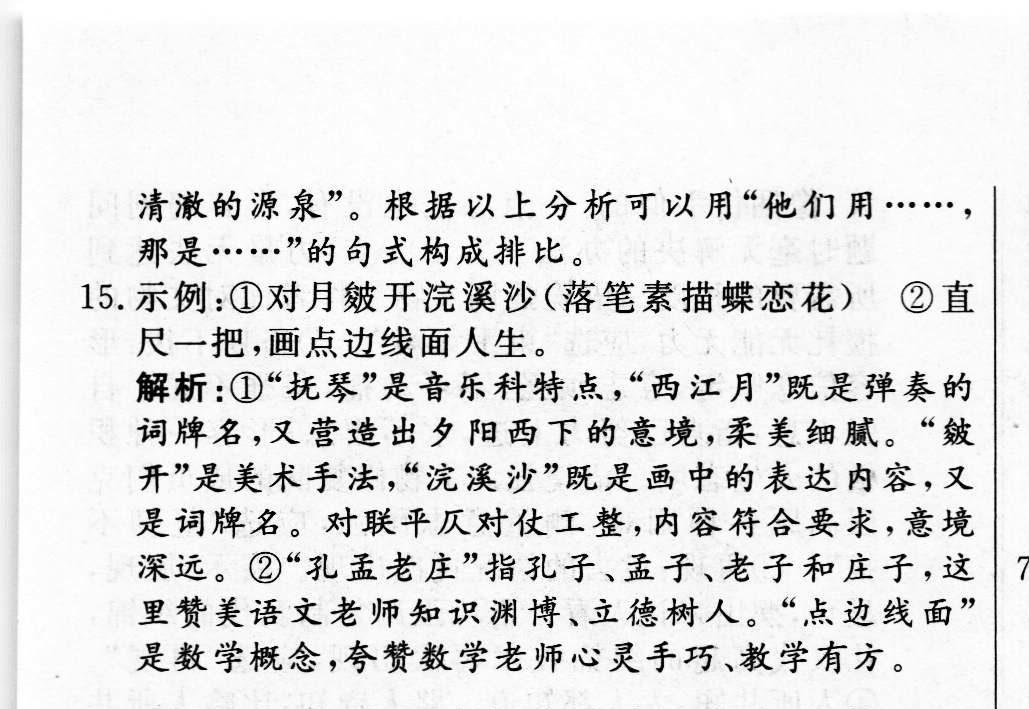 清澈的源泉”。根据以上分析可以用“他们用……，
那是……”的句式构成排比。
15. 示例:①对月皴开浣溪沙(落笔素描蝶恋花)　②直
尺一把,画点边线面人生。
解析:①“抚琴”是音乐科特点,“西江月”既是弹奏的
词牌名,又营造出夕阳西下的意境,柔美细腻。“皴
开”是美术手法,“浣溪沙”既是画中的表达内容,又
是词牌名。对联平仄对仗工整,内容符合要求,意境
深远。②“孔孟老庄”指孔子、孟子、老子和庄子,这
里赞美语文老师知识渊博、立德树人。“点边线面”
是数学概念,夸赞数学老师心灵手巧、教学有方。
7